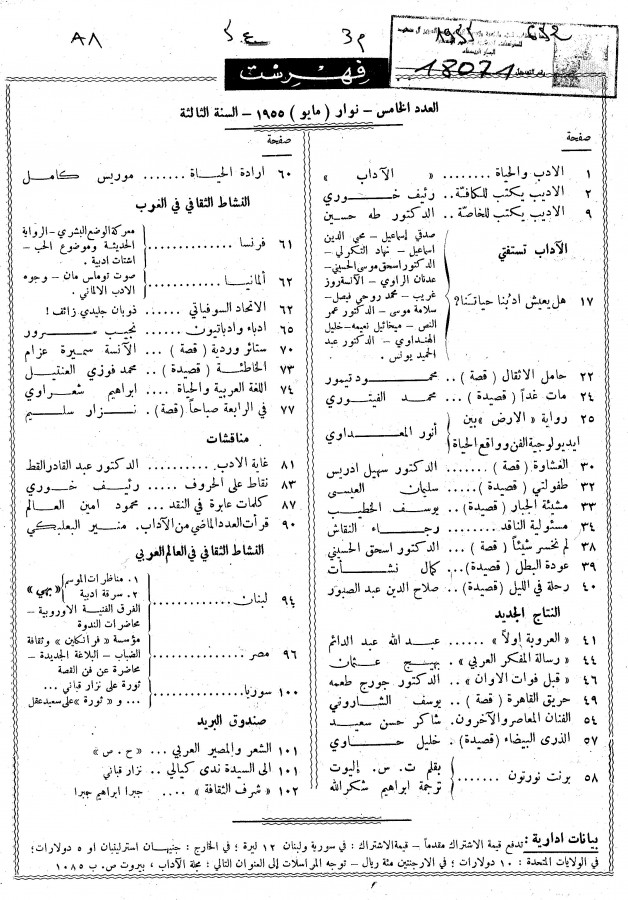 ٨٨
م٣
18021
فهرست
العدد الخامس – نوار ( مايو ) ١٩٥٥ – السنة الثالثة
صفحة
١ الادب والحياة ........ « الآداب »
٢ الاديب يكتب للكافة .. رئيف خوري
٩ الاديب يكتب للخاصة .. الدكتور طه حسين
الآداب تستفتي
١٧ هل يعيش ادبنا حياتنا ؟
صدقي إسماعيل – محي الدين
اسماعيل – نهاد التكرلي –
الدكتور اسحق موسى الحسيني –
عدنان الراوي – الآنسة روز
غريب – محمد روحي فيصل –
سلامة موسى – الدكتور عمر
النص – ميخائيل نعيمه – خليل
الهنداوي – الدكتور عبد
الحميد يونس .
٢٢ حامل الاثقال ( قصة ) .. محمود تيمور
٢٤ مات غداً ( قصيدة ) ... محمد الفيتوري
٢٥ رواية « الارض » بين
ايديولوجية الفن وواقع الحياة
أنور المعداوي
٣٠ الغشاوة ( قصة ) ....... الدكتور سهيل ادريس
٣٢ طفولتي ( قصيدة ) ..... سليمان العيسى
٣٣ مشيئة الجبار ( قصيدة ) .. يوسف الخطيب
٣٤ مسئولية الناقد ........ رجاء النقاش
٣٨ لم نخسر شيئاً ( قصة ) ... الدكتور اسحق الحسيني
٣٩ عودة البطل ( قصيدة ) ... كمال نشأت
٤٠ رحلة في الليل ( قصيدة ) .. صلاح الدين عبد الصبور
النتاج الجديد
٤١ « العروبة اولاً » ...... عبد الله عبد الدائم
٤٤ « رسالة المفكر العربي » . بهيج عثمان
٤٦ « قبل فوات الاوان » ... الدكتور جورج طعمه
٤٩ حريق القاهرة ( قصة ) .. يوسف الشاروني
٥٤ الفنان المعاصر والآخرون . شاكر حسن سعيد
٥٧ الذرى البيضاء ( قصيدة ) . خليل حاوي
٥٨ برنت نورتون
بقلم ت . س . إليوت
ترجمة ابراهيم شكرالله
صفحة
٦٠ ارادة الحياة ....... موريس كامل
النشاط الثقافي في الغرب
٦١ فرنسا .............
معركة الوضع البشري – الرواية
الحديثة وموضوع الحب –
اشتات ادبية .
٦٢ ألمانيا .............
صوت توماس مان – وجوه
الادب الالماني .
٦٢ الاتحاد السوفياتي ..... ذوبان جليدي زائف !
٦٥ ادباء وادباتيون ...... نجيب سرور
٧٠ ستائر وردية ( قصة ) ... الآنسة سميرة عزام
٧٣ الخاطئة ( قصيدة ) .... محمد فوزي العنتيل
٧٤ اللغة العربية والحياة .... ابراهيم شعراوي
٧٧ في الرابعة صباحاً ( قصة ) . نزار سليم
مناقشات
٨١ غاية الادب .......... الدكتور عبد القادر القط
٨٣ نقاط على الحروف ..... رئيف خوري
٨٧ كلمات عابرة في النقد ... محمود امين العالم
٩٠ قرأت العدد الماضي من الآداب . منير البعلبكي
النشاط الثقافي في العالم العربي
٩٤ لبنان .............
١ . مناظرات الموسم
٢ . سرقة ادبية
الفرق الفنية الاوروبية –
محاضرات الندوة
٩٦ مصر .............
مؤسسة « فرانكلين » وثقافة
الضباب – البلاغة الجديدة –
محاضرة عن فن القصة
١٠٠ سوريا .............
ثورة على نزار قباني ...
... و « ثورة » على سعيد عقل
صندوق البريد
١٠١ الشعر والمصير العربي ... « ح . ص »
١٠١ الى السيدة ندى كيالي .. نزار قباني
١٠٢ « شرف الثقافة » .... جبرا ابراهيم جبرا
بيانات ادارية : تدفع قيمة الاشتراك مقدماً – قيمة الاشتراك : في سورية ولبنان ١٢ ليرة ؛ في الخارج : جنيهان استرلينيان او ٥ دولارات ؛
في الولايات المتحدة : ١٠ دولارات ؛ في الارجنتين مئة ريال – توجه المراسلات إلى العنوان التالي : مجلة الآداب ، بيروت ص . ب ١٠٨٥